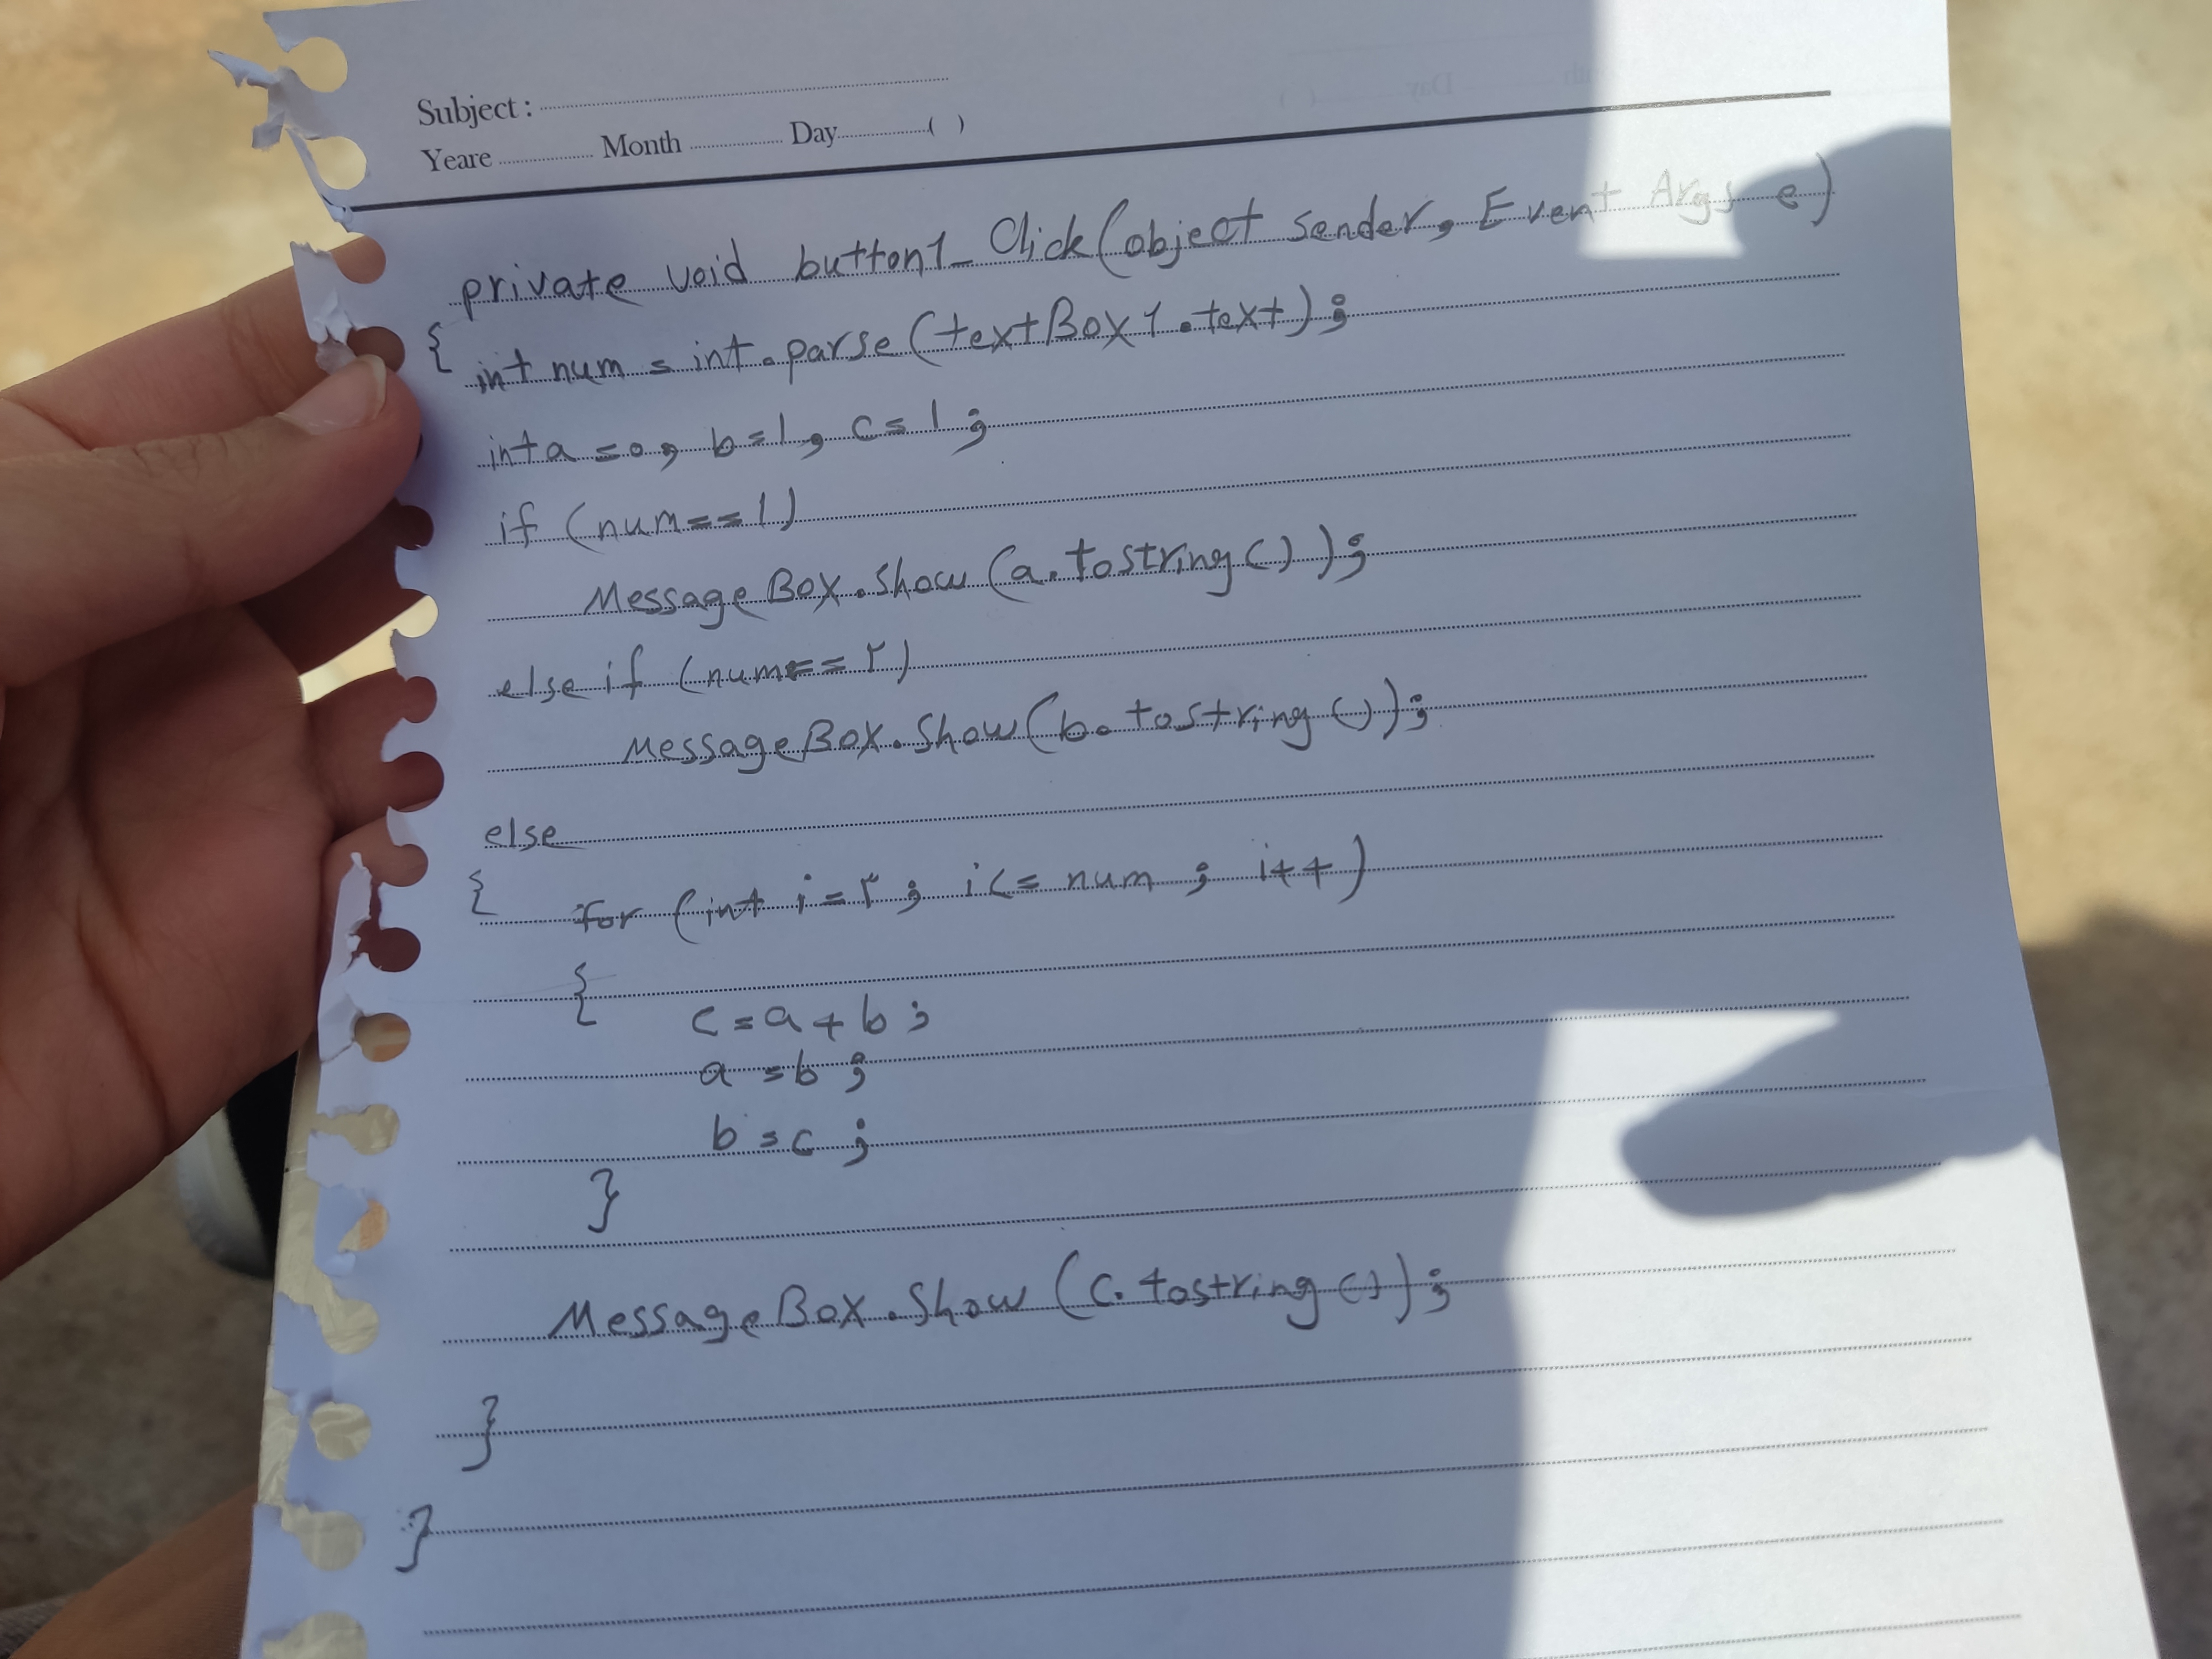 Subject :
Yeare Month Day ( )
private void button1_Click(object sender, Event Args e)
{ int num = int.parse(textBox1.text);
int a = 0, b=1, c=1;
if (num==1)
MessageBox.show(a.tostring());
else if (num==۲)
MessageBox.Show(b.tostring());
else
{ for (int i=۳; i<= num ; i++)
{ c=a+b;
a=b;
b=c;
}
MessageBox.Show(c.tostring());
}
}